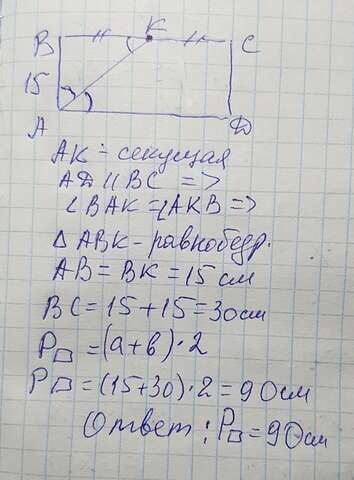 B K C
15
A D
AK - секущая
AD || BC =>
∠BAK = ∠AKB =>
△ABK - равнобедр.
AB = BK = 15 см
BC = 15 + 15 = 30 см
P▭ = (a + b) · 2
P▭ = (15 + 30) · 2 = 90 см
Ответ: P▭ = 90 см